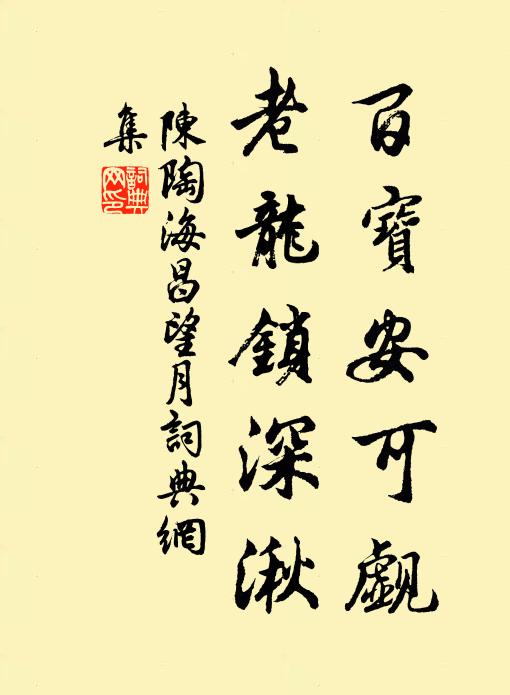 百寶安可覷
老龍鎖深湫
陳陶海昌望月詞典網
集
詞典
网印